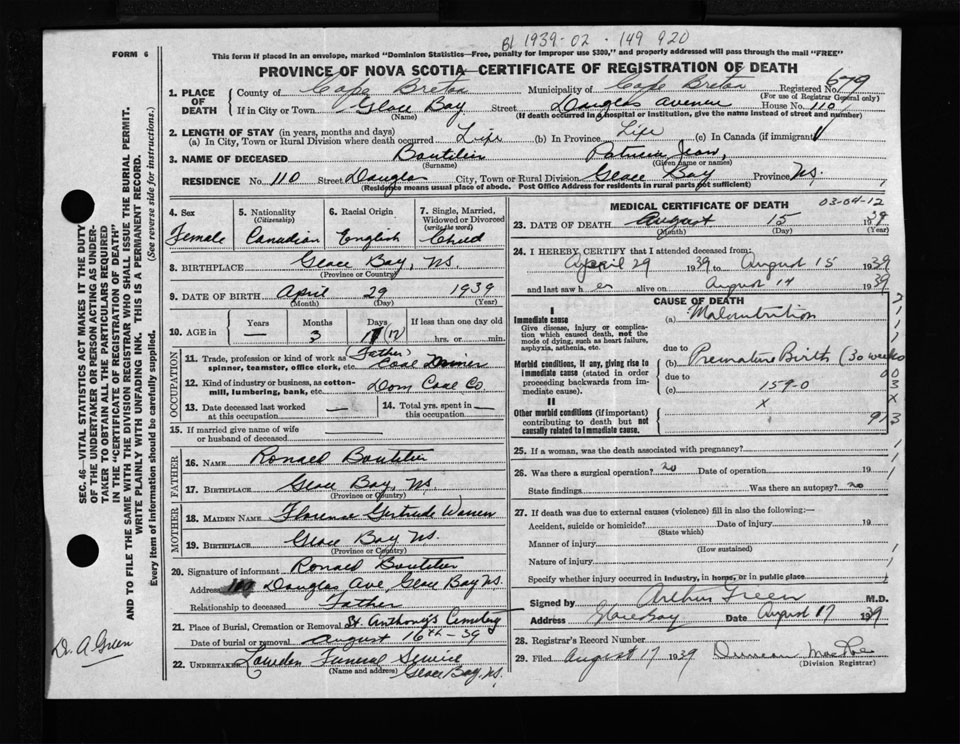 BI 1939-02-149 920
FORM 6
This form if placed in an envelope, marked "Dominion Statistics—Free, penalty for improper use $300," and properly addressed will pass through the mail "FREE"
PROVINCE OF NOVA SCOTIA—CERTIFICATE OF REGISTRATION OF DEATH
1. PLACE OF DEATH
County of Cape Breton Municipality of Cape Breton Registered No. 679
(For use of Registrar General only)
If in City or Town Glace Bay Street Douglas Avenue House No. 110
(Name) (If death occurred in a hospital or institution, give the name instead of street and number)
2. LENGTH OF STAY (in years, months and days)
(a) In City, Town or Rural Division where death occurred Life (b) In Province Life (c) In Canada (if immigrant)
3. NAME OF DECEASED Boutilier Patricia Jean,
(Surname) (Given name or names)
RESIDENCE No. 110 Street Douglas City, Town or Rural Division Glace Bay Province N.S.
(Residence means usual place of abode. Post Office Address for residents in rural parts not sufficient)
4. Sex
Female
5. Nationality (Citizenship)
Canadian
6. Racial Origin
English
7. Single, Married, Widowed or Divorced (write the word)
Child
8. BIRTHPLACE Glace Bay, N.S.
(Province or Country)
9. DATE OF BIRTH April 29 1939
(Month) (Day) (Year)
10. AGE in
Years Months Days If less than one day old
— 3 17 (17) hrs. or min.
OCCUPATION
11. Trade, profession or kind of work as spinner, teamster, office clerk, etc. (Father) Coal Miner
12. Kind of industry or business, as cotton-mill, lumbering, bank, etc. Dom Coal Co
13. Date deceased last worked at this occupation —
14. Total yrs. spent in this occupation —
15. If married give name of wife or husband of deceased —
FATHER
16. NAME Ronald Boutilier
17. BIRTHPLACE Glace Bay, N.S.
(Province or Country)
MOTHER
18. MAIDEN NAME Florence Gertrude Warren
19. BIRTHPLACE Glace Bay N.S.
(Province or Country)
20. Signature of informant Ronald Boutilier
Address 110 Douglas Ave, Glace Bay N.S.
Relationship to deceased Father
21. Place of Burial, Cremation or Removal St Anthony's Cemetery
Date of burial or removal August 16th-39
22. UNDERTAKER Funeral Service
(Name and address) Glace Bay, N.S.
MEDICAL CERTIFICATE OF DEATH 03-04-12
23. DATE OF DEATH August 15 1939
(Month) (Day) (Year)
24. I HEREBY CERTIFY that I attended deceased from:
April 29 1939 to August 15 1939
and last saw her alive on August 14 1939
CAUSE OF DEATH
I
Immediate cause (a) Malnutrition
Give disease, injury or complication which caused death, not the mode of dying, such as heart failure, asphyxia, asthenia, etc.
due to
Morbid conditions, if any, giving rise to immediate cause (stated in order proceeding backwards from immediate cause). (b) Premature Birth (30 weeks
due to
(c) 159-0
II
X
Other morbid conditions (if important) contributing to death but not causally related to immediate cause.
25. If a woman, was the death associated with pregnancy?
26. Was there a surgical operation? no Date of operation 19
State findings Was there an autopsy? no
27. If death was due to external causes (violence) fill in also the following:—
Accident, suicide or homicide? Date of injury 19
(State which)
Manner of injury
(How sustained)
Nature of injury
Specify whether injury occurred in industry, in home, or in public place
Signed by Arthur Green M.D.
Address Glace Bay Date August 17 1939
28. Registrar's Record Number
29. Filed August 17 1939 Duncan MacRae
(Division Registrar)
SEC. 46—VITAL STATISTICS ACT MAKES IT THE DUTY
OF THE UNDERTAKER OR PERSON ACTING AS UNDER-
TAKER TO OBTAIN ALL THE PARTICULARS REQUIRED
IN THE "CERTIFICATE OF REGISTRATION OF DEATH"
AND TO FILE THE SAME WITH THE DIVISION REGISTRAR WHO SHALL ISSUE THE BURIAL PERMIT.
WRITE PLAINLY WITH UNFADING INK. THIS IS A PERMANENT RECORD.
Every item of information should be carefully supplied. (See reverse side for instructions.)
Dr. A. Green